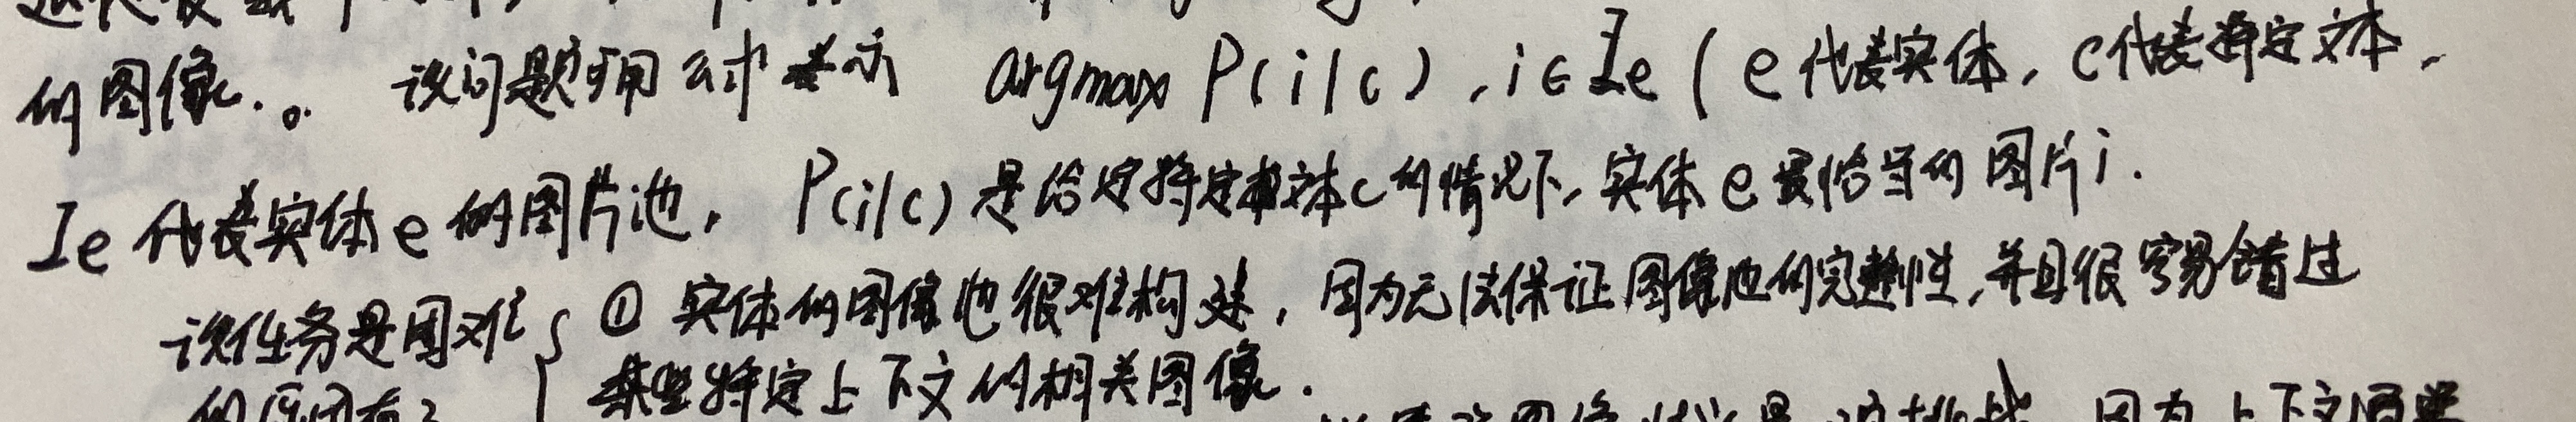 的图像.。 该问题可用公式表示 argmax P(i|c), i∈Ie (e代表实体, c代表特定文本,
Ie代表实体e的图片池, P(i|c)是给定特定文本c的情况下,实体e最恰当的图片i.
该任务是困难 { ① 实体的图像池很难构建, 因为无法保证图像池的完整性,并且很容易错过
的原因有2 某些特定上下文的相关图像.
图像 是 挑战 因为上下文通常